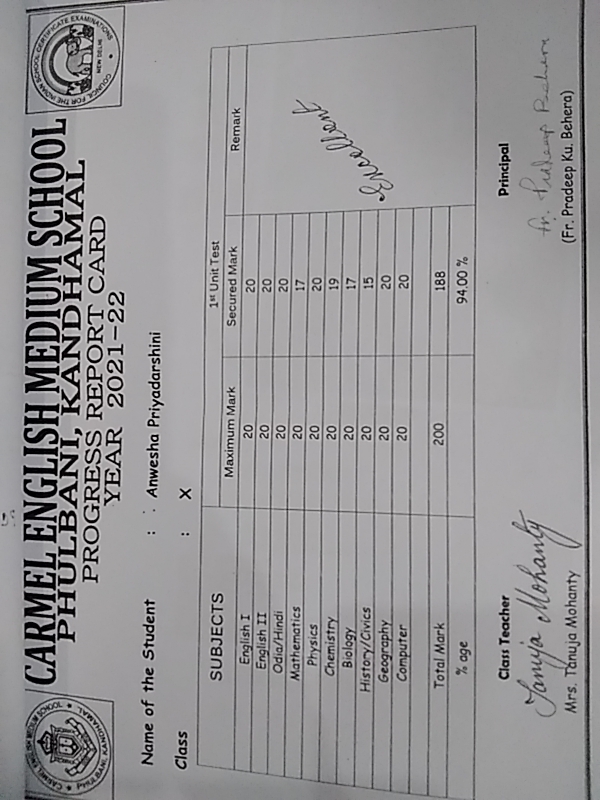 CARMEL ENGLISH MEDIUM SCHOOL
PHULBANI, KANDHAMAL
PROGRESS REPORT CARD
YEAR 2021-22
CARMEL ENGLISH MEDIUM SCHOOL
PHULBANI, KANDHAMAL
COUNCIL FOR THE INDIAN SCHOOL CERTIFICATE EXAMINATIONS
NEW DELHI
Name of the Student : Anwesha Priyadarshini
Class : X
SUBJECTS 1st Unit Test
Maximum Mark Secured Mark Remark
English I 20 20
English II 20 20
Odia/Hindi 20 20
Mathematics 20 17
Physics 20 20
Chemistry 20 19
Biology 20 17
History/Civics 20 15
Geography 20 20
Computer 20 20
Excellent
Total Mark 200 188
% age 94.00 %
Class Teacher Principal
Tanuja Mohanty Fr. Pradeep Behera
Mrs. Tanuja Mohanty (Fr. Pradeep Ku. Behera)